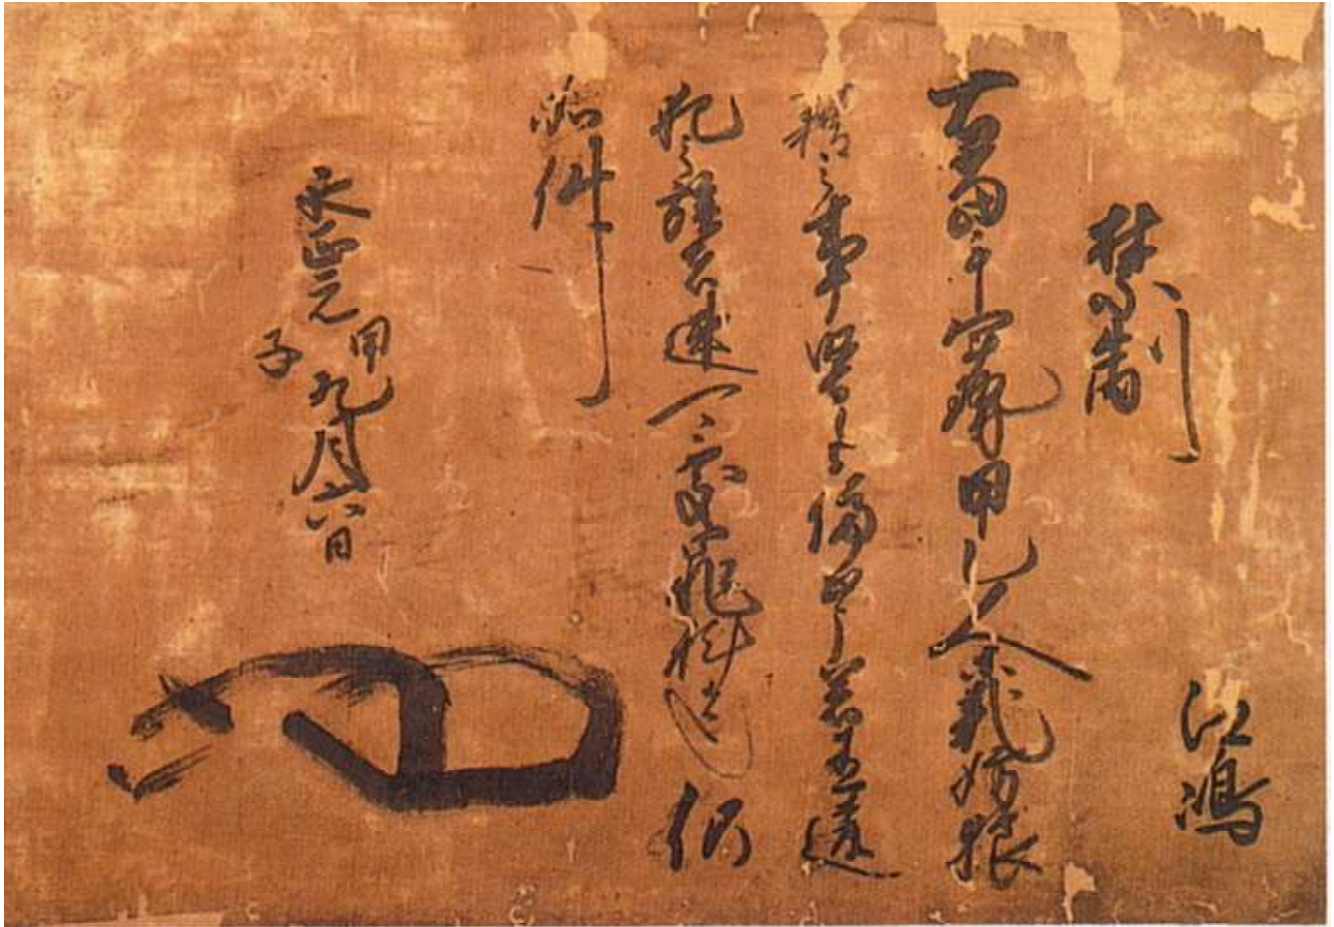 禁制
江嶋
右当手軍勢甲乙人乱妨狼
藉之事堅令停止了若至違
犯之族者速可處罪科者也仍
如件
永正元甲子九月六日